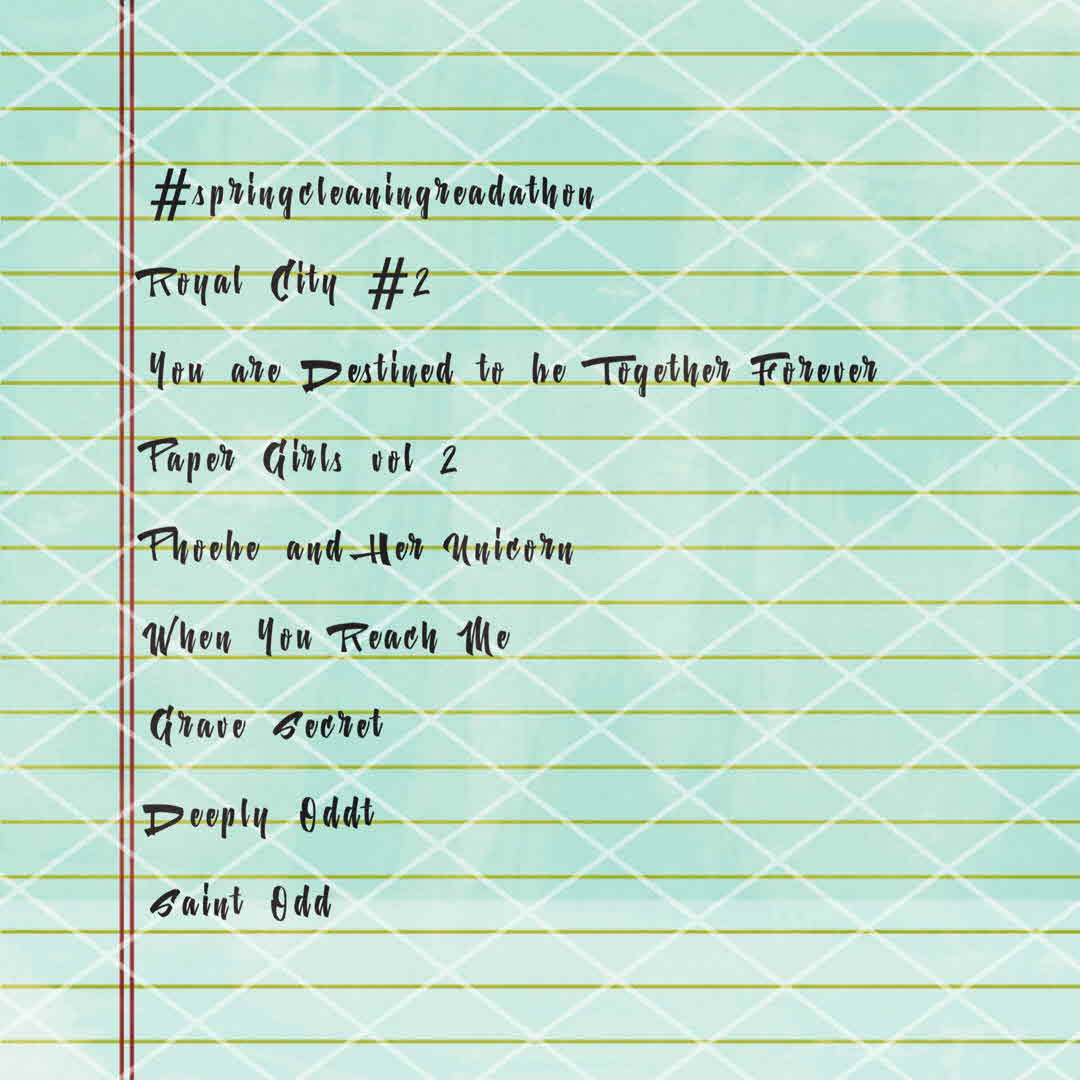 #springcleaningreadathon
Royal City #2
You are Destined to be Together Forever
Paper Girls vol 2
Phoebe and Her Unicorn
When You Reach Me
Grave Secret
Deeply Oddt
Saint Odd